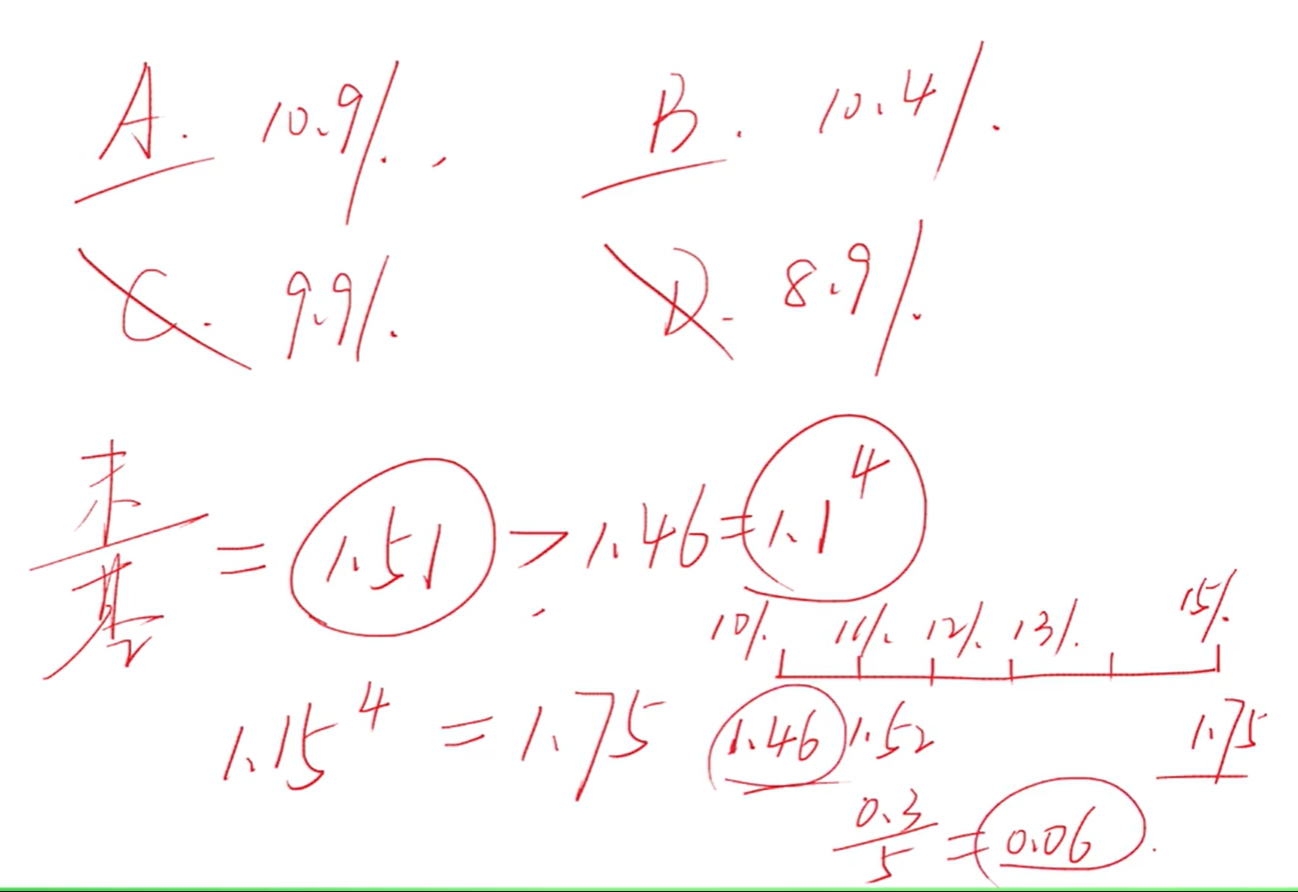 A. 10.9%. B. 10.4%.
C. 9.9%. D. 8.9%.
末/基 = 1.51 > 1.46 = 1.1^4
10% 11% 12% 13% 15%
1.15^4 = 1.75 1.46 1.52 1.75
0.3/5 = 0.06